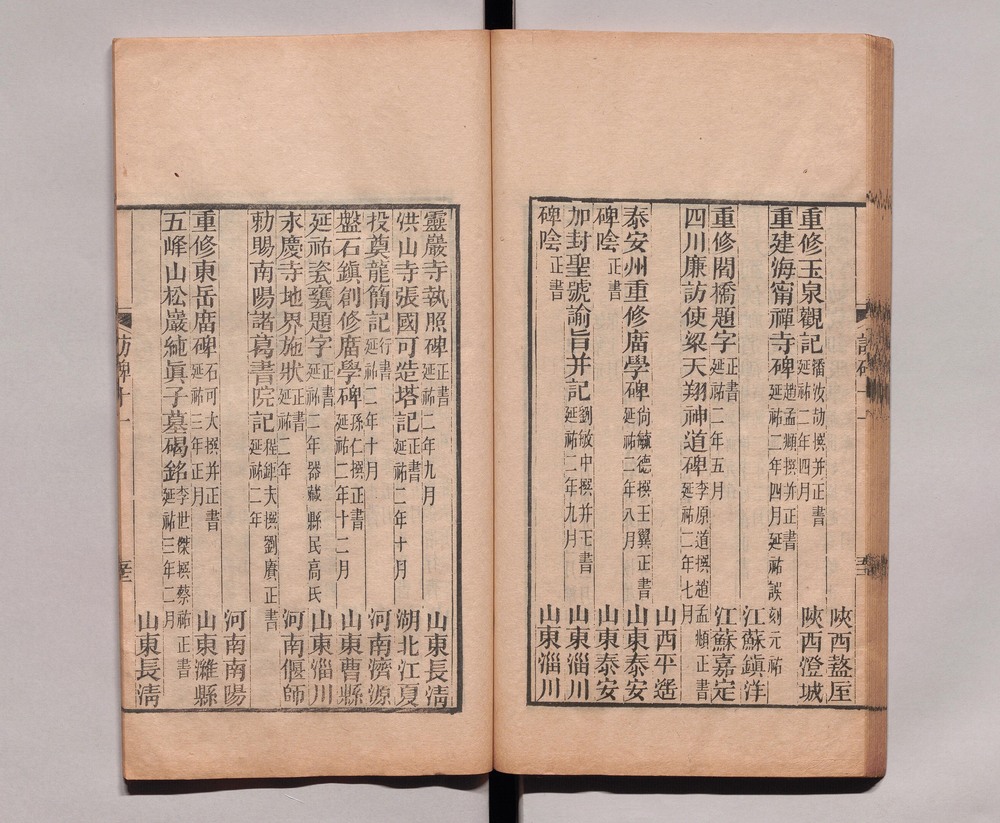 陝西盩厔
重修玉泉觀記 潘汝劼撰并正書 延祐二年四月 陝西澄城
重建海甯禪寺碑 趙孟頫撰并正書 延祐二年四月延祐誤刻元祐
江蘇鎮洋
重修閻橋題字 正書 延祐二年五月 江蘇嘉定
四川廉訪使梁天翔神道碑 李原道撰趙孟頫正書 延祐二年七月
山西平遙
泰安州重修廟學碑 尙毓德撰王翼正書 延祐二年八月 山東泰安
碑陰 正書 山東泰安
加封聖號諭旨并記 劉敏中撰并正書 延祐二年九月 山東淄川
碑陰 正書 山東淄川
靈巖寺執照碑 正書 延祐二年九月 山東長淸
洪山寺張國可造塔記 正書 延祐二年十月 湖北江夏
投奠龍簡記 行書 延祐二年十月 河南濟源
盤石鎭創修廟學碑 孫仁撰正書 延祐二年十二月 山東曹縣
延祐瓷甕題字 正書 延祐二年器藏縣民高氏 山東淄川
永慶寺地界施狀 正書 延祐二年 河南偃師
勅賜南陽諸葛書院記 程鉅夫撰劉賡正書 延祐二年
河南南陽
重修東岳廟碑 石可大撰并正書 延祐三年正月 山東濰縣
五峰山松巖純眞子墓碣銘 李世傑撰蔡祐正書 延祐三年二月
山東長淸
訪碑十一